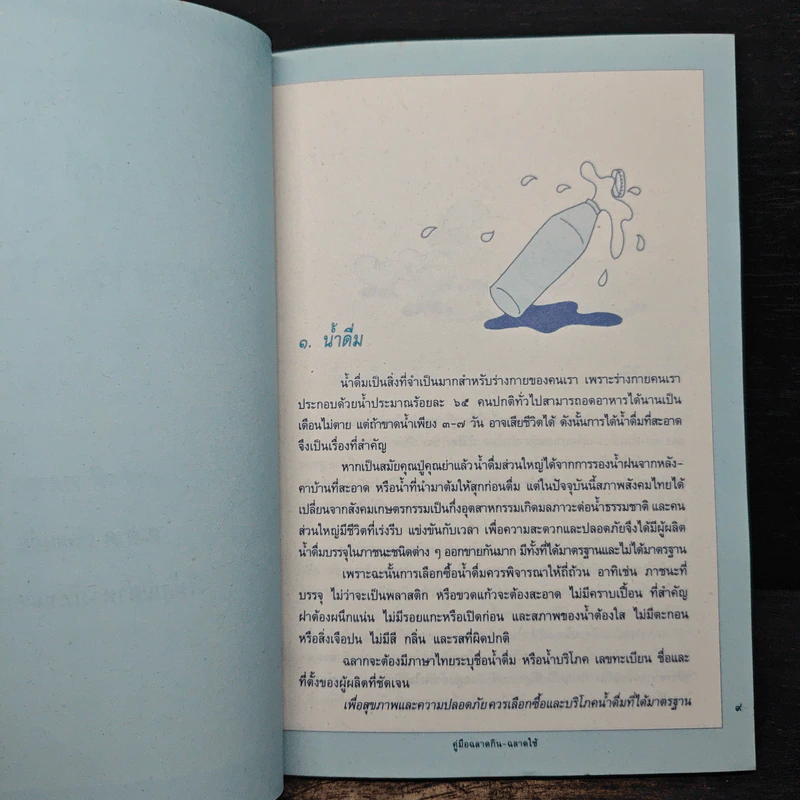 ๑. น้ำดื่ม
น้ำดื่มเป็นสิ่งที่จำเป็นมากสำหรับร่างกายของคนเรา เพราะร่างกายคนเรา
ประกอบด้วยน้ำประมาณร้อยละ ๖๕ คนปกติทั่วไปสามารถอดอาหารได้นานเป็น
เดือนไม่ตาย แต่ถ้าขาดน้ำเพียง ๓-๗ วัน อาจเสียชีวิตได้ ดังนั้นการได้น้ำดื่มที่สะอาด
จึงเป็นเรื่องที่สำคัญ
หากเป็นสมัยคุณปู่คุณย่าแล้วน้ำดื่มส่วนใหญ่ได้จากการรองน้ำฝนจากหลัง-
คาบ้านที่สะอาด หรือน้ำที่นำมาต้มให้สุกก่อนดื่ม แต่ในปัจจุบันนี้สภาพสังคมไทยได้
เปลี่ยนจากสังคมเกษตรกรรมเป็นกึ่งอุตสาหกรรมเกิดมลภาวะต่อน้ำธรรมชาติ และคน
ส่วนใหญ่มีชีวิตที่เร่งรีบ แข่งขันกับเวลา เพื่อความสะดวกและปลอดภัยจึงได้มีผู้ผลิต
น้ำดื่มบรรจุในภาชนะชนิดต่าง ๆ ออกขายกันมาก มีทั้งที่ได้มาตรฐานและไม่ได้มาตรฐาน
เพราะฉะนั้นการเลือกซื้อน้ำดื่มควรพิจารณาให้ถี่ถ้วน อาทิเช่น ภาชนะที่
บรรจุ ไม่ว่าจะเป็นพลาสติก หรือขวดแก้วจะต้องสะอาด ไม่มีคราบเปื้อน ที่สำคัญ
ฝาต้องผนึกแน่น ไม่มีรอยแกะหรือเปิดก่อน และสภาพของน้ำต้องใส ไม่มีตะกอน
หรือสิ่งเจือปน ไม่มีสี กลิ่น และรสที่ผิดปกติ
ฉลากจะต้องมีภาษาไทยระบุชื่อน้ำดื่ม หรือน้ำบริโภค เลขทะเบียน ชื่อและ
ที่ตั้งของผู้ผลิตที่ชัดเจน
เพื่อสุขภาพและความปลอดภัยควรเลือกซื้อและบริโภคน้ำดื่มที่ได้มาตรฐาน
๙
คู่มือฉลาดกิน-ฉลาดใช้